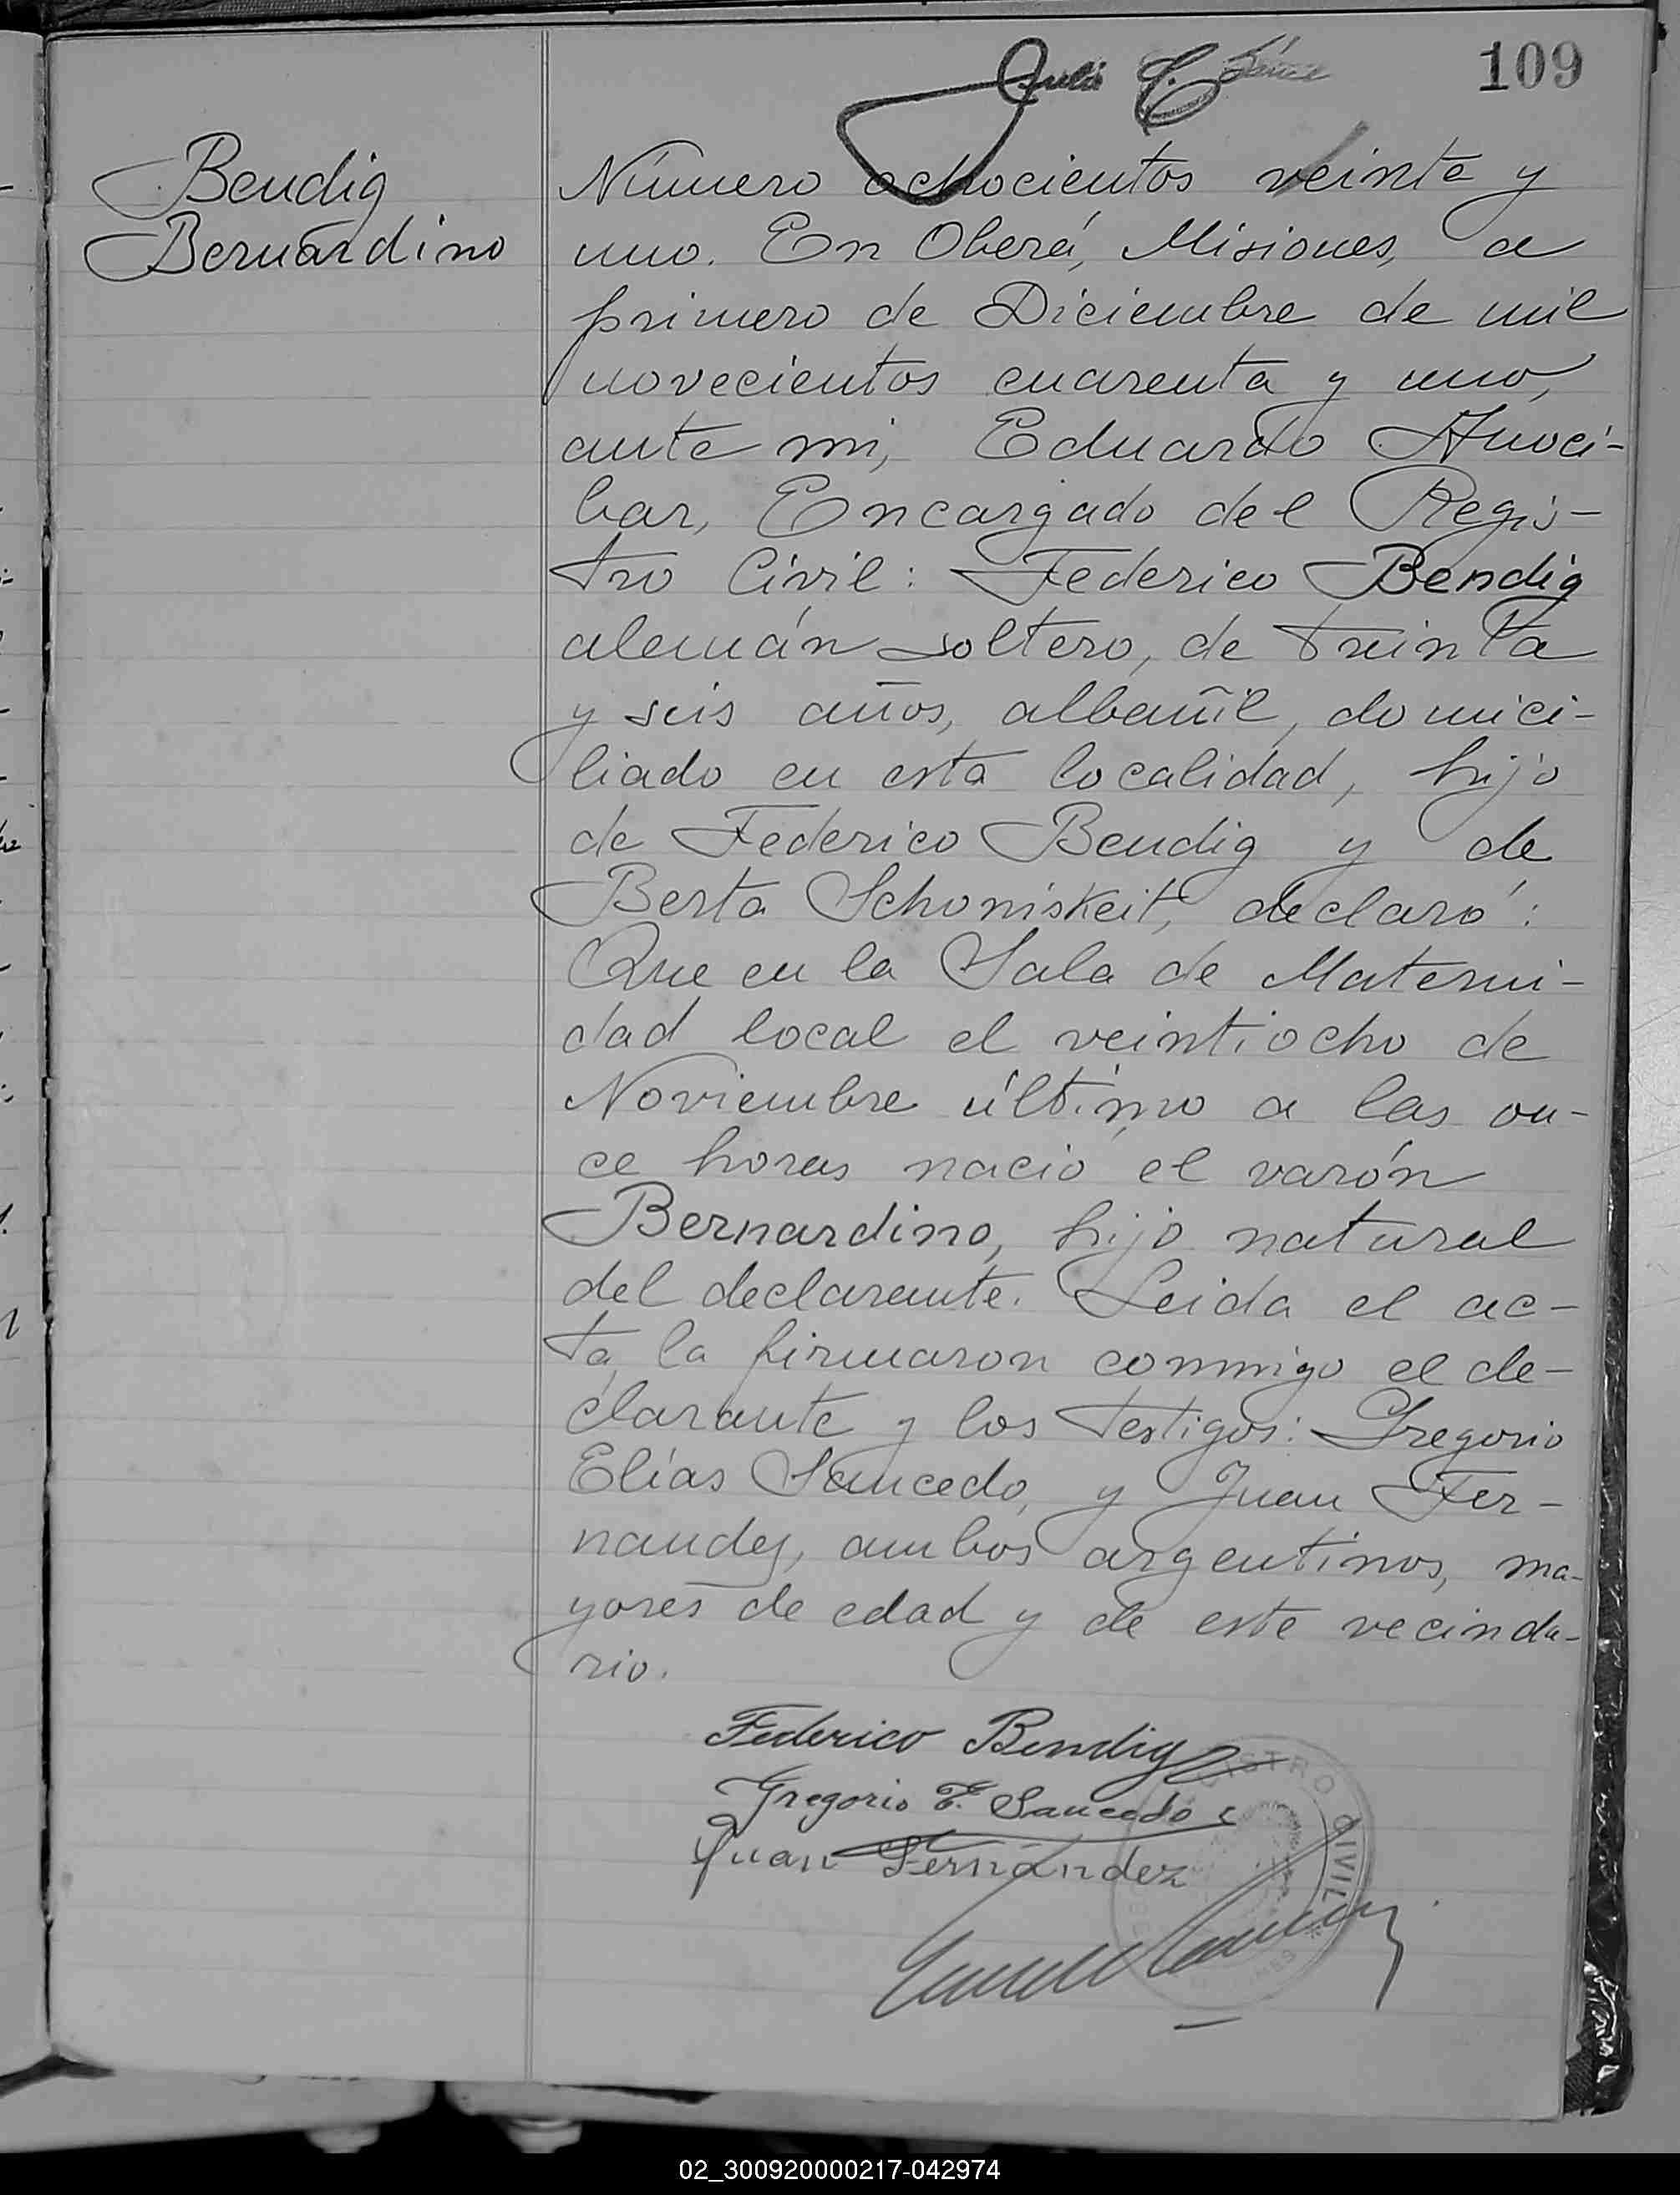 109
Julio C.
Bendig
Bernardino
Número ochocientos veinte y
uno. En Oberá, Misiones, a
primero de Diciembre de mil
novecientos cuarenta y uno,
ante mi, Eduardo Anoci-
bar, Encargado del Regis-
tro Civil: Federico Bendig
alemán soltero, de treinta
y seis años, albañil, domici-
liado en esta localidad, hijo
de Federico Bendig y de
Berta Schoniskeit, declaró:
Que en la Sala de Materni-
dad local el veintiocho de
Noviembre último a las on-
ce horas nació el varón
Bernardino, hijo natural
del declarante. Leida el ac-
ta, la firmaron conmigo el de-
clarante y los testigos: Gregorio
Elías Saucedo, y Juan Fer-
nandez, ambos argentinos, ma-
yores de edad y de este vecinda-
rio.
Federico Bendig
Gregorio E. Saucedo
Juan Fernández
REGISTRO CIVIL
02_300920000217-042974